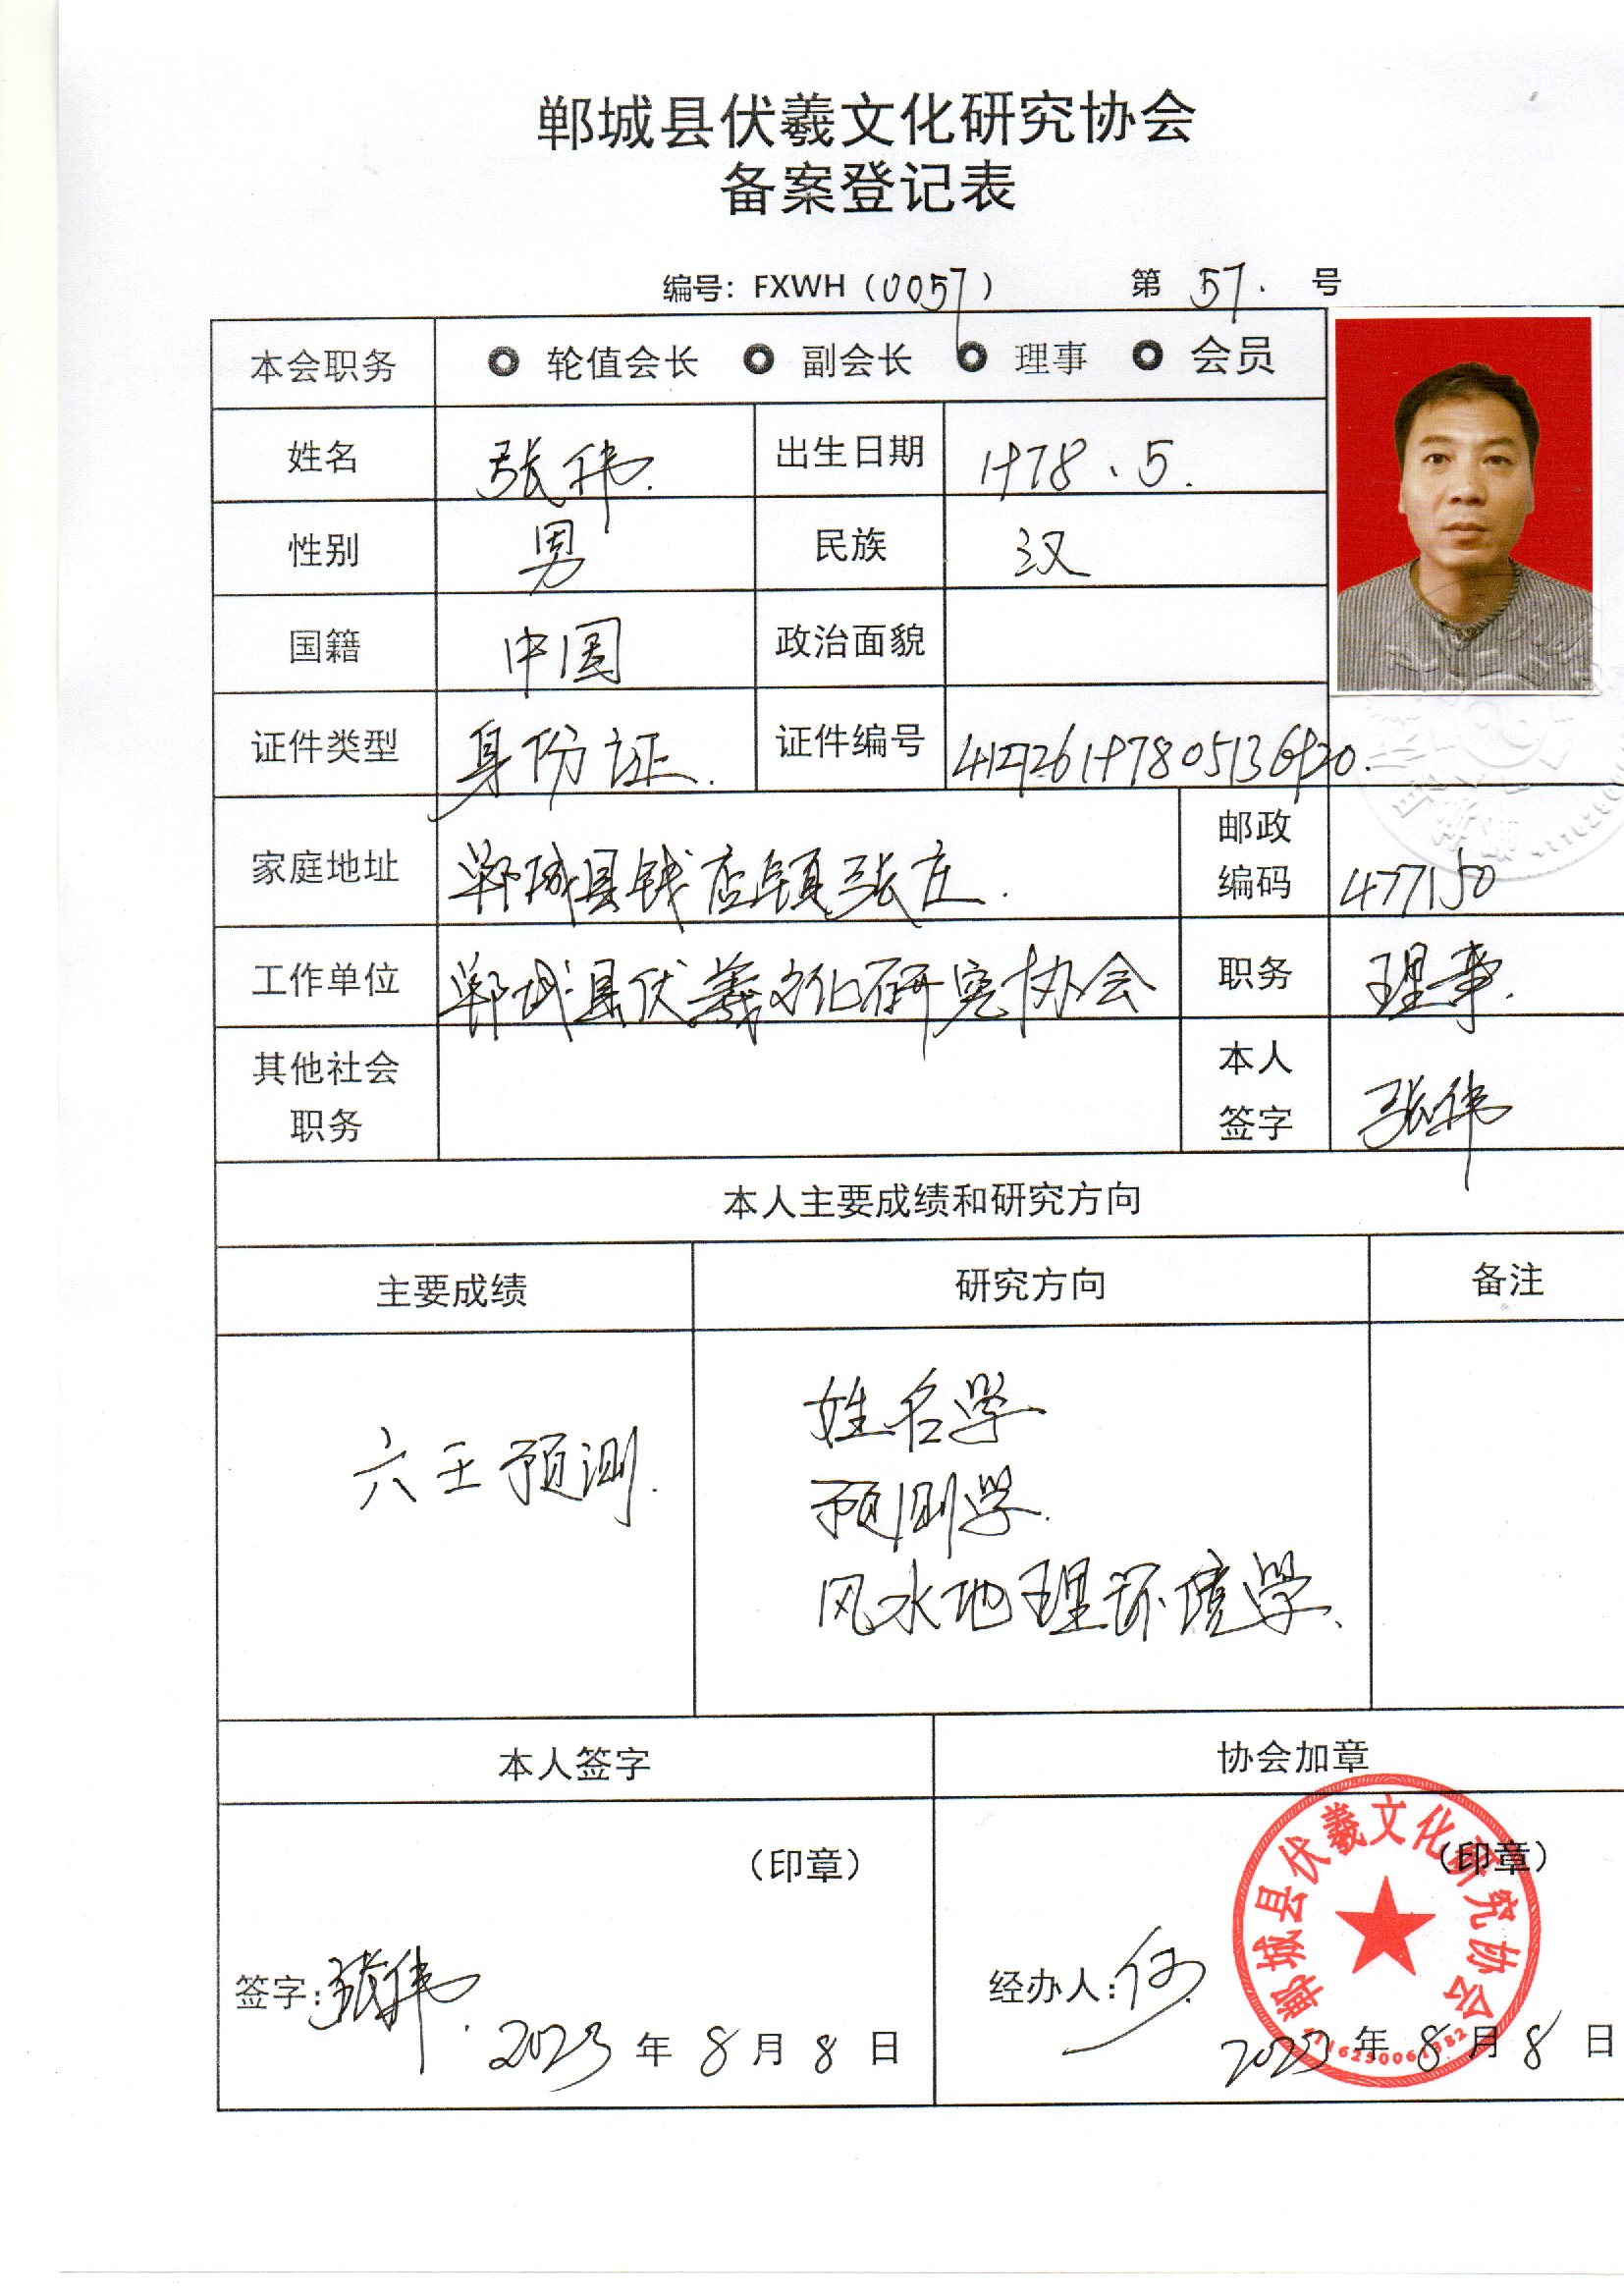 郸城县伏羲文化研究协会
备案登记表
编号：FXWH（0057） 第 57. 号
本会职务 轮值会长 副会长 理事 会员
姓名 张伟. 出生日期 1978、5.
性别 男 民族 汉
国籍 中国 政治面貌
证件类型 身份证. 证件编号 412726197805136920.
家庭地址 郸城县钱店镇张庄. 邮政编码 477150
工作单位 郸城县伏羲文化研究协会 职务 理事.
其他社会职务 本人签字 张伟
本人主要成绩和研究方向
主要成绩 研究方向 备注
六壬预测. 姓名学
预测学.
风水地理环境学、
本人签字 协会加章
（印章） （印章）
签字：张伟. 经办人：何.
2023 年 8 月 8 日 2023 年 8 月 8 日
郸城县伏羲文化研究协会